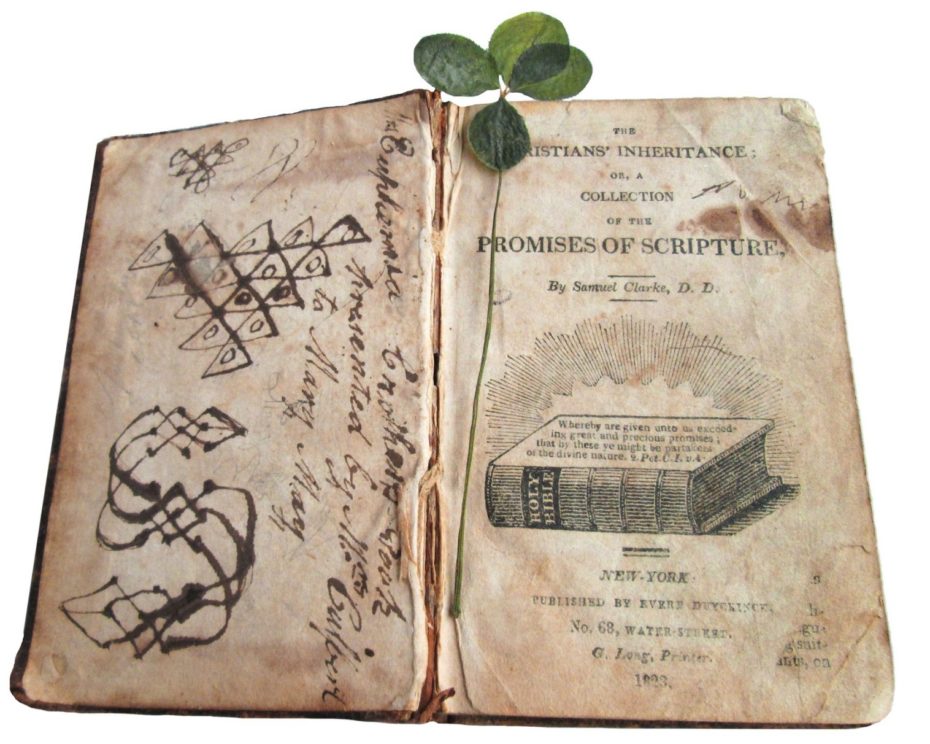 presented by
to Mary May
THE
RISTIANS' INHERITANCE;
OR, A
COLLECTION
OF THE
PROMISES OF SCRIPTURE,
By Samuel Clarke, D. D.
Whereby are given unto us exceed-
ing great and precious promises;
that by these ye might be partakers
of the divine nature. 2. Pet. C. I. v. 4.
HOLY
BIBLE
NEW-YORK
PUBLISHED BY EVERT DUYCKINCK,
No. 68, WATER-STREET.
G. Long, Printer.
1823.